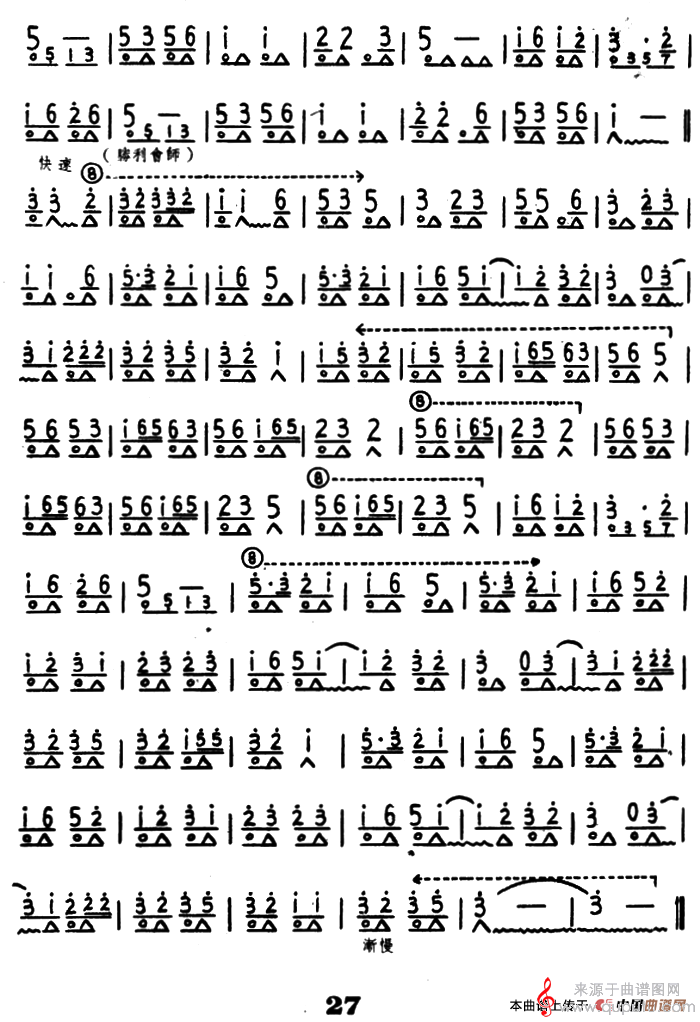 5 5 – 1 3 | 5 3 5 6 | i i | 2 2 3 | 5 – | i 6 i 2 | 3 · 2 0 3 5 7 |
i 6 2 6 | 5 – 5 1 3 | 5 3 5 6 | i i | 2 2 6 | 5 3 5 6 | i – ‖
快速 (勝利會師)
⑧
3 3 2 | 3 2 3 3 2 | i i 6 | 5 3 5 | 3 2 3 | 5 5 6 | 3 2 3 |
i i 6 | 5·3 2 i | i 6 5 | 5·3 2 i | i 6 5 i | i 2 3 2 | 3 0 3 |
3 i 2 2 2 | 3 2 3 5 | 3 2 i | i 5 3 2 | i 5 3 2 | i 6 5 6 3 | 5 6 5 |
⑧
5 6 5 3 | i 6 5 6 3 | 5 6 i 6 5 | 2 3 2 | 5 6 i 6 5 | 2 3 2 | 5 6 5 3 |
⑧
i 6 5 6 3 | 5 6 i 6 5 | 2 3 5 | 5 6 i 6 5 | 2 3 5 | i 6 i 2 | 3 · 2 0 3 5 7 |
⑧
i 6 2 6 | 5 – 5 1 3 | 5·3 2 i | i 6 5 | 5·3 2 i | i 6 5 2 |
i 2 3 i | 2 3 2 3 | i 6 5 i | i 2 3 2 | 3 0 3 | 3 i 2 2 2 |
3 2 3 5 | 3 2 i 5 5 | 3 2 i | 5·3 2 i | i 6 5 | 5·3 2 i |
i 6 5 2 | i 2 3 i | 2 3 2 3 | i 6 5 i | i 2 3 2 | 3 0 3 |
3 i 2 2 2 | 3 2 3 5 | 3 2 i i | 3 2 3 5 | 3 – | 3 – ‖
漸慢
27
来源于曲谱网
本曲谱上传于 中国曲谱网